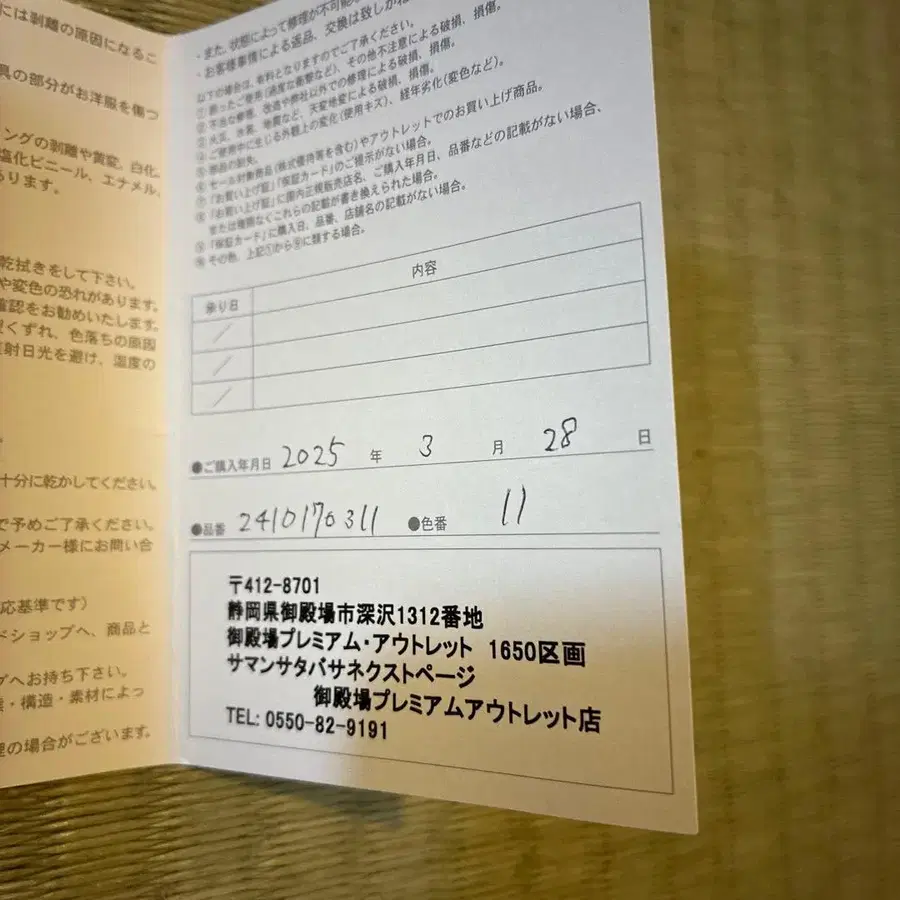 には剥離の原因になるこ
具の部分がお洋服を傷つ
ングの剥離や黄変、白化、
塩化ビニール、エナメル、
あります。
乾拭きをして下さい。
や変色の恐れがあります。
確認をお勧めいたします。
くずれ、色落ちの原因
射日光を避け、温度の
十分に乾かしてください。
で予めご了承ください。
メーカー様にお問い合
応基準です）
ドショップへ、商品と
グへお持ち下さい。
・構造・素材によっ
理の場合がございます。
・また、状態によって修理が不可能な
・お客様事情による返品、交換は致しかね
以下の場合は、有料となりますのでご了承ください。
①誤ったご使用（過度な衝撃など）、その他不注意による破損、損傷。
②不当な修理、改造や弊社以外での修理による破損、損傷。
③火災、水害、地震など、天変地変による破損、損傷。
④ご使用中に生じる外観上の変化（使用キズ）、経年劣化（変色など）。
⑤部品の紛失。
⑥セール対象商品（株式優待等を含む）やアウトレットでのお買い上げ商品。
⑦「お買い上げ証」「保証カード」のご提示がない場合。
⑧「お買い上げ証」に国内正規販売店名、ご購入年月日、品番などの記載がない場合、
または権限なくこれらの記載が書き換えられた場合。
⑨「保証カード」に購入日、品番、店舗名の記載がない場合。
⑩その他、上記①から⑨に類する場合。
承り日 内容
／
／
／
●ご購入年月日 2025 年 3 月 28 日
●品番 2410170311 ●色番 11
〒412-8701
静岡県御殿場市深沢1312番地
御殿場プレミアム・アウトレット 1650区画
サマンサタバサネクストページ
御殿場プレミアムアウトレット店
TEL: 0550-82-9191